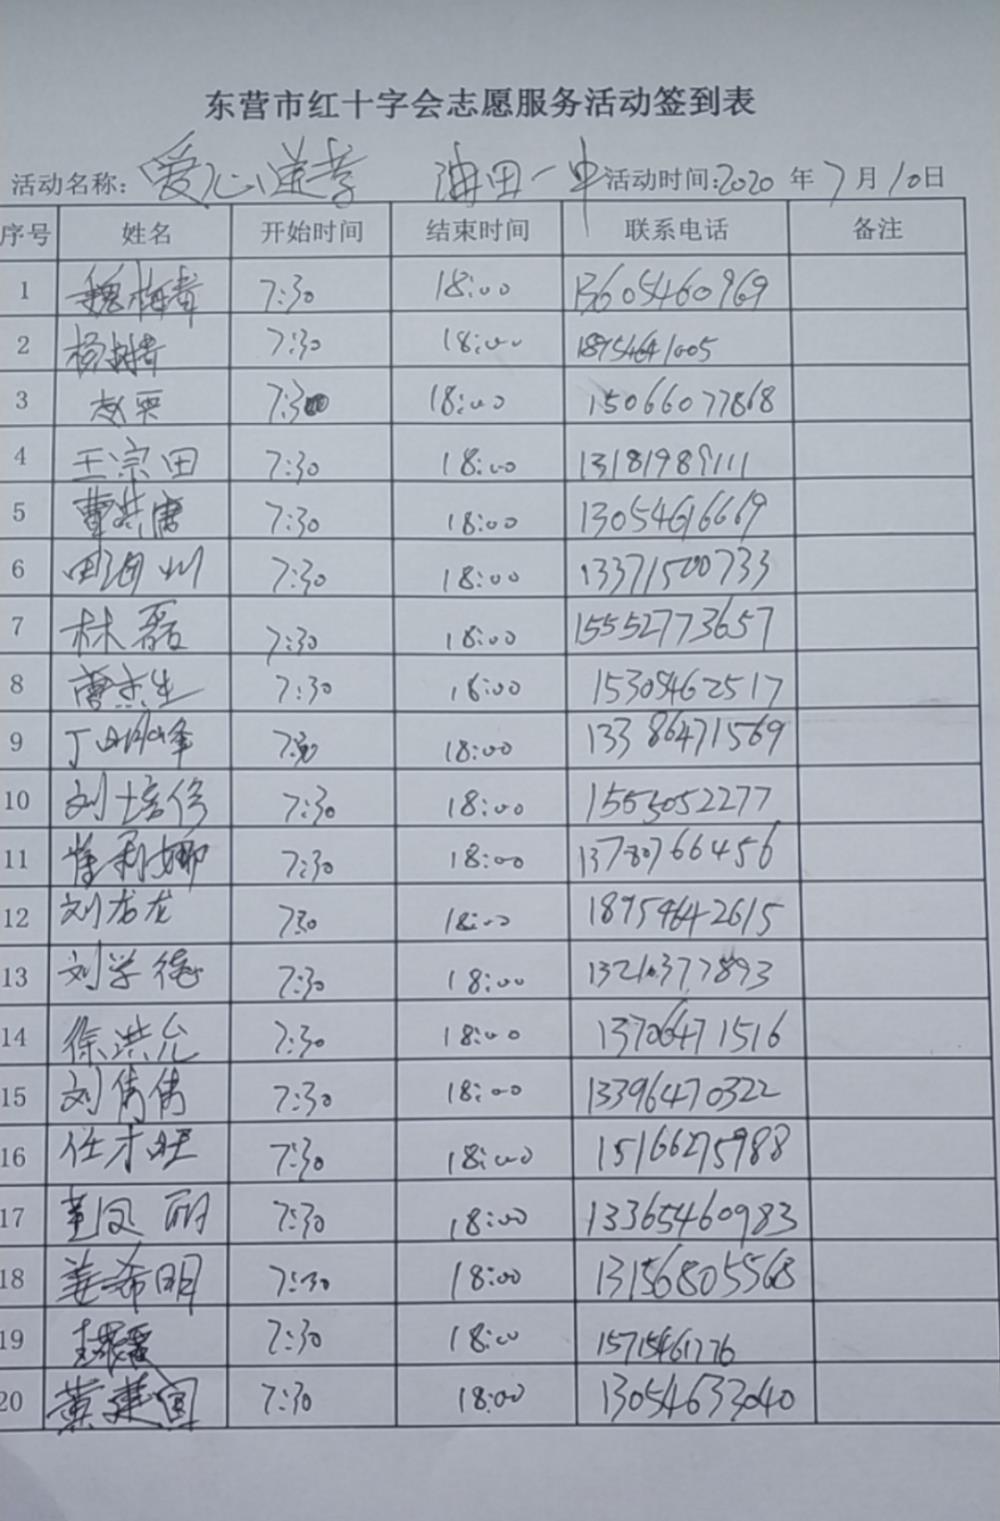 东营市红十字会志愿服务活动签到表
活动名称: 爱心送考 海田一中 活动时间:2020 年 7 月 10 日
序号 姓名 开始时间 结束时间 联系电话 备注
1 魏梅青 7:30 18:00 13605460969
2 杨树青 7:30 18:00 18954641005
3 赵栗 7:30 18:00 15066077868
4 王宗田 7:30 18:00 13181989111
5 曹洪唐 7:30 18:00 13054616669
6 田海州 7:30 18:00 13371500733
7 林磊 7:30 18:00 15552773657
8 7:30 18:00 15305462517
9 丁明峰 7:30 18:00 13386471569
10 刘培修 7:30 18:00 1555052277
11 崔莉娜 7:30 18:00 13780766456
12 刘龙龙 730 18:00 18954642615
13 刘学德 7:30 18:00 13210377893
14 徐洪允 7:30 18:00 13706471516
15 刘倩倩 7:30 18:00 13396470322
16 任才旺 7:30 18:00 15166275988
17 董凤丽 7:30 18:00 13365460983
18 姜希明 7:30 18:00 13156805568
19 7:30 18:00 15715461776
20 黄建国 7:30 18:00 13054633040